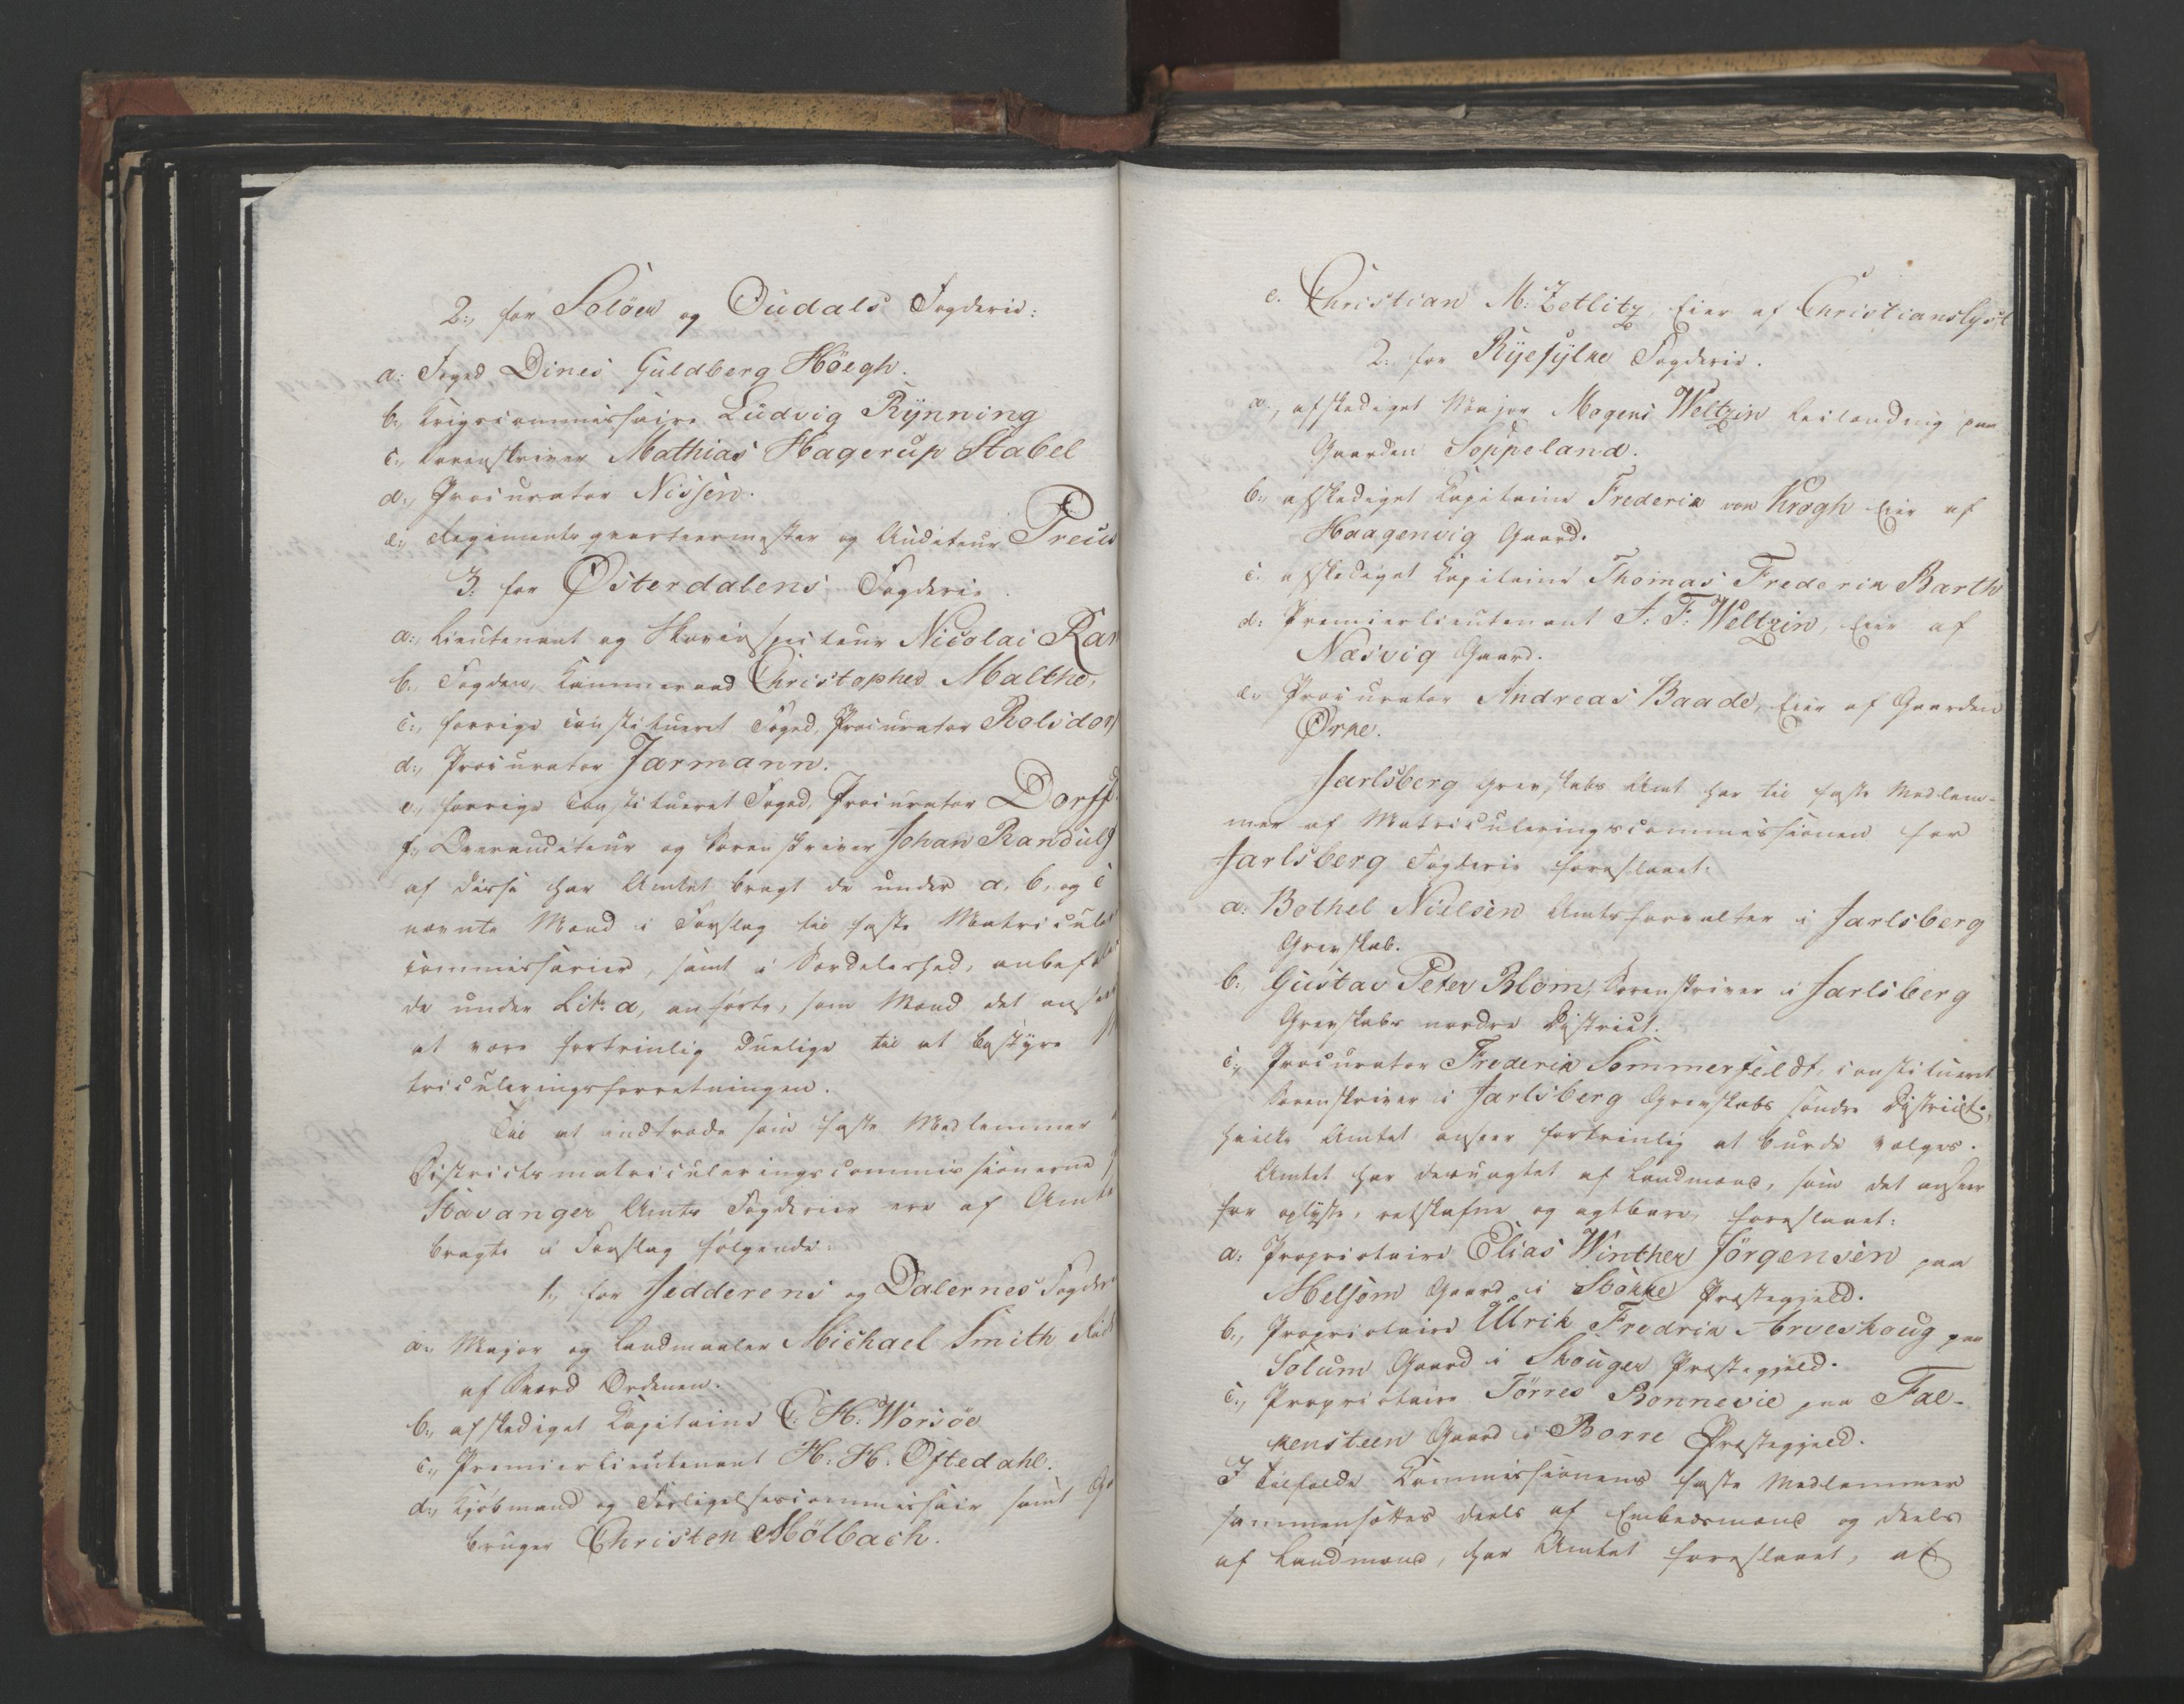 2:, for Soløer og Oudals Fogderie:
a: Foged Dines Guldberg Høegh.
b:, Krigscommissaire Ludvig Rynning
c:, Sorenskriver Mathias Hagerup Stabel
d:, Procurator Nissen.
e:, Regimentsqvarteermester og Auditeur Preus
3: for Østerdalens Fogderie.
a:, Lieutenant og Skovinspecteur Nicolai
b:, Fogden, Kammerraad Christopher Malthe,
c:, forrige constitueret Foged, Procurator Rolsdorf
d:, Procurator Jarmann.
e:, forrige constitueret Foged, Procurator Dorff
f:, Overauditeur og Sorenskriver Johan Randulf
af disse har Amtet bragt de under a, b, og c
nævnte Mænd i Forslag til faste Matricul
commissarier, samt i Særdeleshed, anbef
de under Litr: a, anførte, som Mænd det anseer
at være fortrinlig duelige til at bestyre
triculeringsforretningen.
Til at indtræde som faste Medlemmer
Districtsmatriculeringscommissionerne
Stavanger Amts Fogderier ere af Amtet
bragte i Forslag følgende:
1:, for Jedderens og Dalernes Fogderie
a:, Major og Landmaaler Michael Smith Ridd
af Sværd Ordenen.
b:, afskediget Capitaine C: H: Worsøe
c:, Premierlieutenant H: H: Oftedahl.
d:, Kjøbmand og Forligelsescommissair samt
bruger Christen Mølbach.
e. Christian M: Zetlitz, Eier af Christianslyst
2: for Ryefylke Fogderie.
a:, afskediget Major Mogens Weltzin Leilænding paa
Gaarden Soppeland.
b:, afskediget Capitaine Frederik von Krogh Eier af
Haagenvig Gaard.
c: afskediget Capitaine Thomas Frederik Barth
d: Premierlieutenant J: F: Weltzin, Eier af
Næsvig Gaard.
e:, Procurator Andreas Baade, Eier af Gaarden
Ørke.
Jarlsberg Grevskabs Amt har til faste Medlem-
mer af Matriculeringscommissionen for
Jarlsberg Fogderie foreslaaet:
a: Bothel Nielsen Amtsforvalter i Jarlsberg
Grevskab.
b:, Gustav Peter Blom, Sorenskriver i Jarlsberg
Grevskabs nordre District.
c:, Procurator Frederik Sommerfeldt, constitueret
Sorenskriver i Jarlsberg Grevskabs søndre District,
hvilke Amtet anseer fortrinlig at burde vælges.
Amtet har desuagtet af Landmænd, som det anseer
for oplyste, retskafne og agtbare, foreslaaet:
a: Proprietaire Elias Winther Jörgensen paa
Melsom Gaard i Stokke Præstegjeld.
b:, Proprietaire Ulrik Fredrik Arveskoug paa
Solum Gaard i Skouger Præstegjeld.
c:, Proprietaire Tørres Bonnevie paa Fal-
kensteen Gaard i Borre Præstegjeld.
I Tilfælde Commissionens faste Medlemmer
sammensættes deels af Embedsmænd og deels
af Landmænd, har Amtet foreslaaet, at